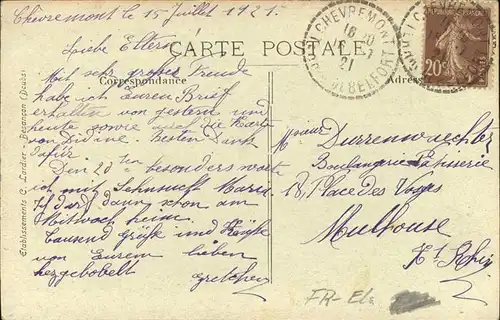 Chèvremont le 15 Juillet 1921.
Liebe Eltern
CARTE POSTALE
Mit sehr großer Freude
Correspondance
Adresse
habe ich Euren Brief
erhalten von gestern und
heute sowie die Karte
von Besten Dank
dafür.
Den 20ten besonders warte
ich mit Sehnsucht
Ich darf dann schon am
Mittwoch heim.
Tausend Grüße und Küsse
von Eurem lieben
herzgebobelt
Gretchen
CHEVREMONT
16 30
21
BELFORT
20c
Monsieur Durrenwaechter
Boulangerie Pâtisserie
18, Place des Vosges
Mulhouse
Ht Rhin
FR-Els
Etablissements C. Lardier - Besançon (Doubs)